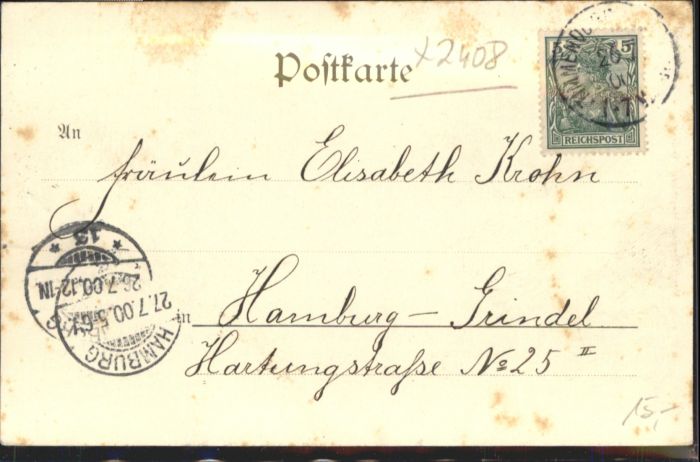 x2408
Postkarte
5
REICHSPOST
An
Fräulein Elisabeth Krohn
13
26.7.00.12-1N.
27.7.00.
HAMBURG
in Hamburg - Grindel
Hartungstraße No 25 II
15,-